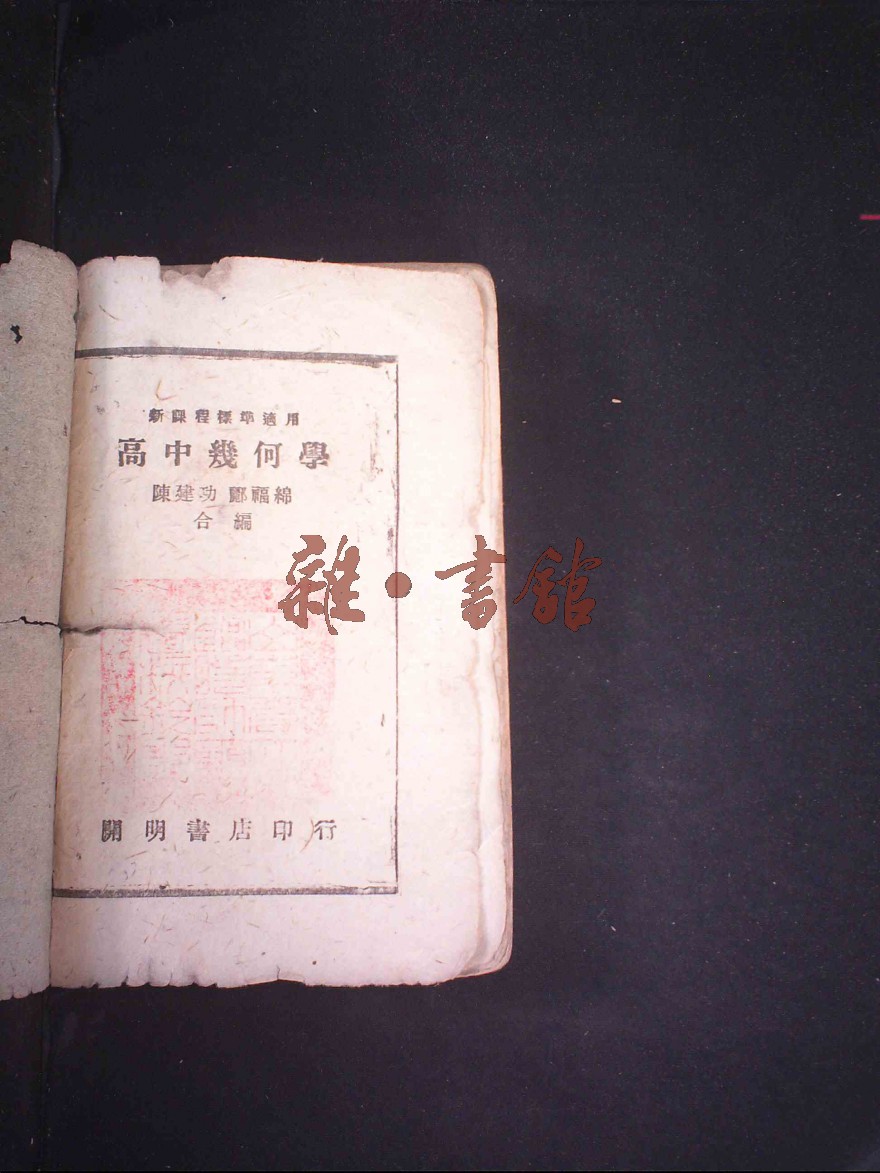 新課程標準適用
高中幾何學
陳建功 酈福綿
合編
雜·書館
開明書店印行